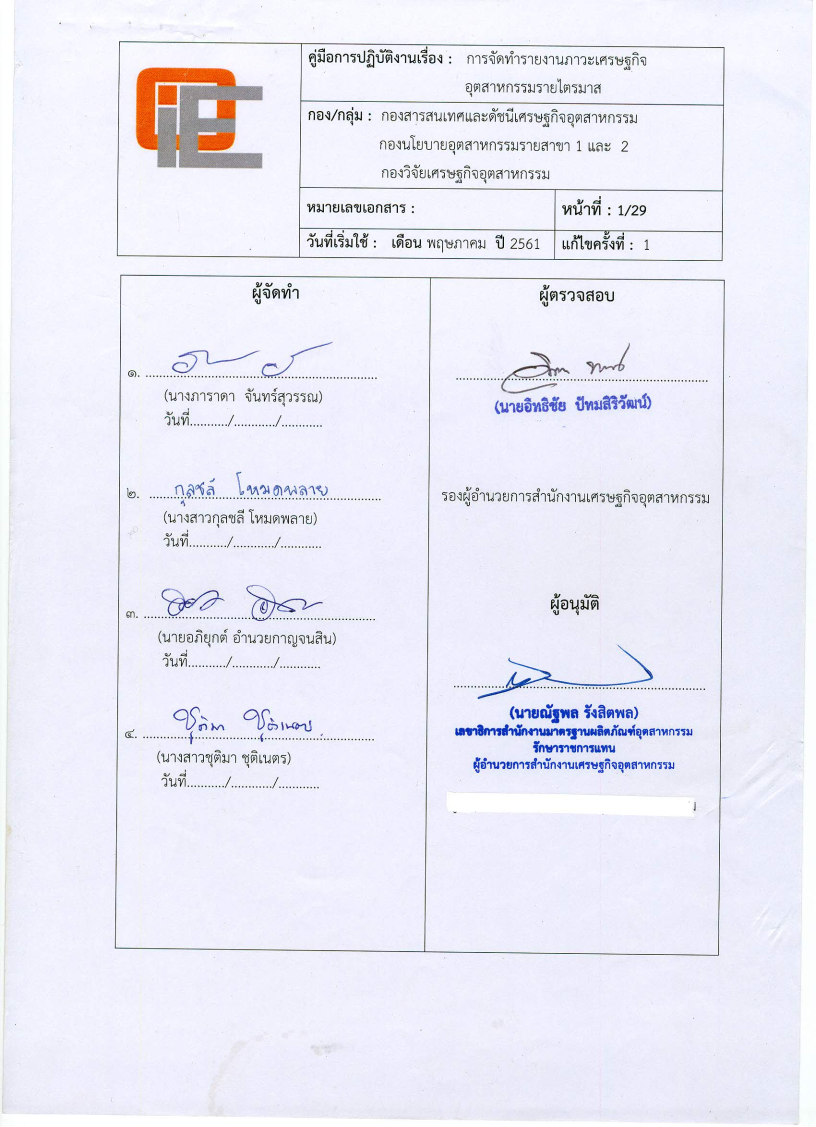 OiE
คู่มือการปฏิบัติงานเรื่อง : การจัดทำรายงานภาวะเศรษฐกิจ
อุตสาหกรรมรายไตรมาส
กอง/กลุ่ม : กองสารสนเทศและดัชนีเศรษฐกิจอุตสาหกรรม
กองนโยบายอุตสาหกรรมรายสาขา 1 และ 2
กองวิจัยเศรษฐกิจอุตสาหกรรม
หมายเลขเอกสาร :
หน้าที่ : 1/29
วันที่เริ่มใช้ : เดือน พฤษภาคม ปี 2561
แก้ไขครั้งที่ : 1
ผู้จัดทำ
๑. ..........
(นางภาราดา จันทร์สุวรรณ)
วันที่.........../.........../...........
๒. กุลชลี โหมดพลาย
(นางสาวกุลชลี โหมดพลาย)
วันที่.........../.........../...........
๓. ..........
(นายอภิยุกต์ อำนวยกาญจนสิน)
วันที่.........../.........../...........
๔. ชุติมา ชุติเนตร
(นางสาวชุติมา ชุติเนตร)
วันที่.........../.........../...........
ผู้ตรวจสอบ
(นายอิทธิชัย ปัทมสิริวัฒน์)
รองผู้อำนวยการสำนักงานเศรษฐกิจอุตสาหกรรม
ผู้อนุมัติ
(นายณัฐพล รังสิตพล)
เลขาธิการสำนักงานมาตรฐานผลิตภัณฑ์อุตสาหกรรม
รักษาราชการแทน
ผู้อำนวยการสำนักงานเศรษฐกิจอุตสาหกรรม